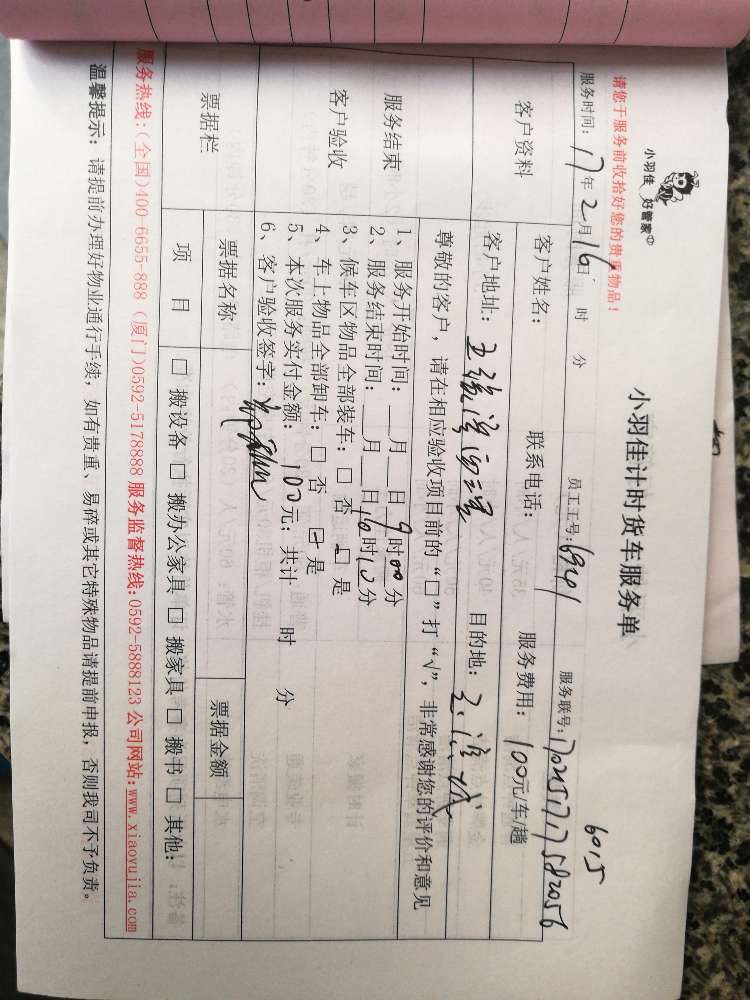 小羽佳 好管家
小羽佳计时货车服务单
请您于服务前收拾好您的贵重物品！
6015
服务时间：17年2月16日 时 分 员工工号：6941 服务联号：
客户资料
客户姓名： 联系电话： 服务费用：100元/车/趟
客户地址： 目的地：
服务结束
客户验收
尊敬的客户，请在相应验收项目前的“□”打“√”，非常感谢您的评价和意见
1、服务开始时间：__月__日9时00分
2、服务结束时间：__月__日10时10分
3、候车区物品全部装车：□ 否 □ 是
4、车上物品全部卸车：□ 否 □ 是
5、本次服务实付金额：100元；共计 时 分
6、客户验收签字：
票据栏
票据名称 票据金额
项 目 □ 搬设备 □ 搬办公家具 □ 搬家具 □ 搬书 □ 其他：
服务热线：(全国)400-6655-888 (厦门)0592-5178888 服务监督热线：0592-5888123 公司网站：www.xiaoyujia.com
温馨提示：请提前办理好物业通行手续，如有贵重、易碎或其它特殊物品请提前申报，否则我司不予负责。